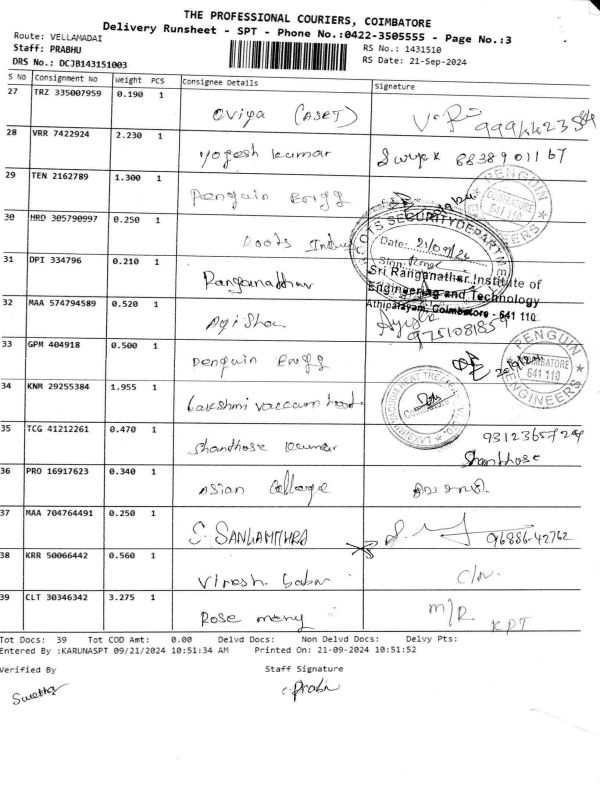 THE PROFESSIONAL COURIERS, COIMBATORE
Delivery Runsheet - SPT - Phone No.:0422-3505555 - Page No.:3
Route: VELLAMADAI
Staff: PRABHU
RS No.: 1431510
DRS No.: DCJB143151003
RS Date: 21-Sep-2024
S No Consignment No Weight PCS Consignee Details Signature
27 TRZ 335007959 0.190 1 Oviya (ASET)
28 VRR 7422924 2.230 1 yogesh kumar Surya
29 TEN 2162789 1.300 1 Penguin Engg
PENGUIN ENGINEERS
COIMBATORE
641 110
30 HRD 305790997 0.250 1 Roots
ROOTS SECURITY DEPARTMENT
Date: 21/09/24
Sign:
31 DPI 334796 0.210 1 Ranganathar
Sri Ranganathar Institute of
Engineering and Technology
Athipalayam, Coimbatore - 641 110
32 MAA 574794589 0.520 1
33 GPM 404918 0.500 1 Penguin Engg
PENGUIN ENGINEERS
COIMBATORE
641 110
34 KNM 29255384 1.955 1 Lakshmi vaccum
35 TCG 41212261 0.470 1 Shanthose kumar
Shanthose
36 PRO 16917623 0.340 1 Asian College
37 MAA 704764491 0.250 1 S. SANGAMITHRA 96886-42762
38 KRR 50066442 0.560 1 Babu
39 CLT 30346342 3.275 1 Rose mery M/R
KPT
Tot Docs: 39 Tot COD Amt: 0.00 Delvd Docs: Non Delvd Docs: Delvy Pts:
Entered By :KARUNASPT 09/21/2024 10:51:34 AM Printed On: 21-09-2024 10:51:52
Verified By Staff Signature